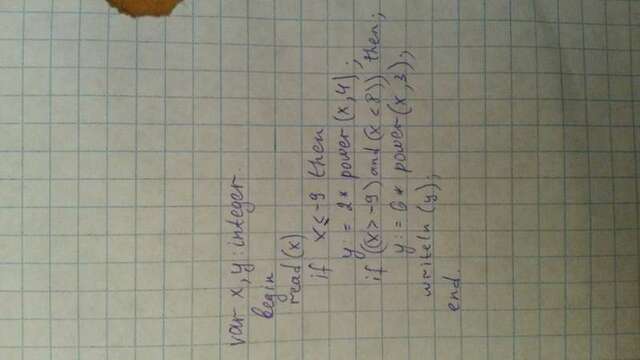 var x, y : integer.
begin
read (x)
if x ≤ -9 then
y: = 2* power (x, 4);
if ((x > -9) and (x < 8)) then;
y: = 6 * power (x, 3);
writeln (y);
end.